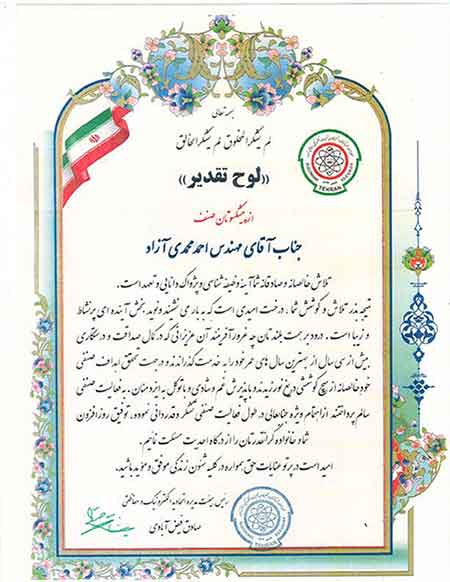 بسمه تعالی
لم یشکر المخلوق لم یشکر الخالق
((لوح تقدیر))
از پیشکسوتان صنف
جناب آقای مهندس احمد محمدی آزاد
تلاش خالصانه و صادقانه شما آینه وظیفه شناسی و پژواک دانایی و تعهد است.
نتیجه بذر تلاش و کوشش شما، درخت امیدی است که به بار می نشیند و نوید بخش آینده ای پر نشاط
و زیبا است. درود بر همت بلندتان چه غرور آفرینند آن عزیزانی که در کمال صداقت و درستکاری
بیش از سی سال از بهترین سال های عمر خود را به خدمت گذراندند و در جهت تحقق اهداف صنفی
خود خالصانه از هیچ کوششی دریغ نورزیدند و با پذیرش غم و شادی و با توکل به ایزد منان، به فعالیت صنفی
سالم پرداختند از اهتمام ویژه جنابعالی در طول فعالیت صنفی تشکر و قدردانی نموده، توفیق روزافزون
شما و خانواده گرانقدرتان را از درگاه احدیت مسئلت نمایم.
امید است در پرتو عنایات حق همواره در کلیه شئون زندگی موفق و موید باشید.
رئیس هیئت مدیره اتحادیه الکترونیک و حفاظتی
صادق فیض آبادی
TEHRAN